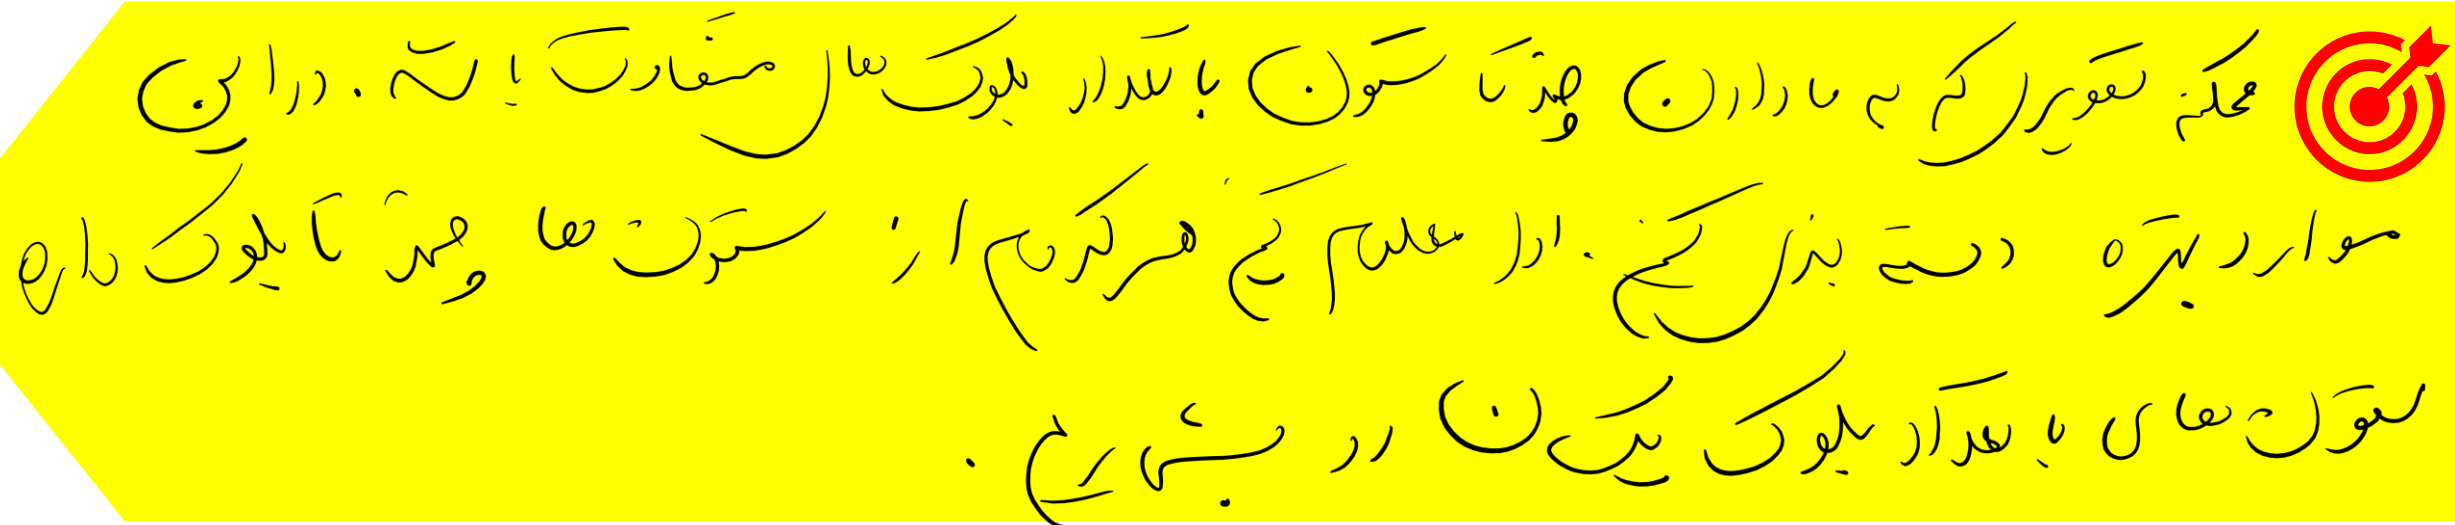 ممکنه تصویری که به ما دادن چند تا ستون با تعداد بلوک های متفاوت باشه . در این
موارد بهتره دسته بندی کنیم . اول معلوم کنیم هر کدوم از ستون ها چند تا بلوک داره
ستون های با تعداد بلوک یکسان رو بشماریم .